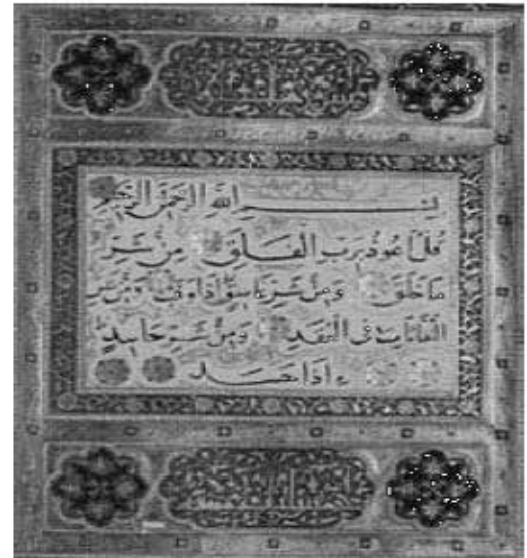 بِسْمِ اللهِ الرَّحْمٰنِ الرَّحِيْمِ
قُلْ اَعُوْذُ بِرَبِّ الْفَلَقِ مِنْ شَرِّ
مَا خَلَقَ وَمِنْ شَرِّ غَاسِقٍ اِذَا وَقَبَ وَمِنْ شَرِّ
النَّفَّاثَاتِ فِى الْعُقَدِ وَمِنْ شَرِّ حَاسِدٍ
اِذَا حَسَدَ